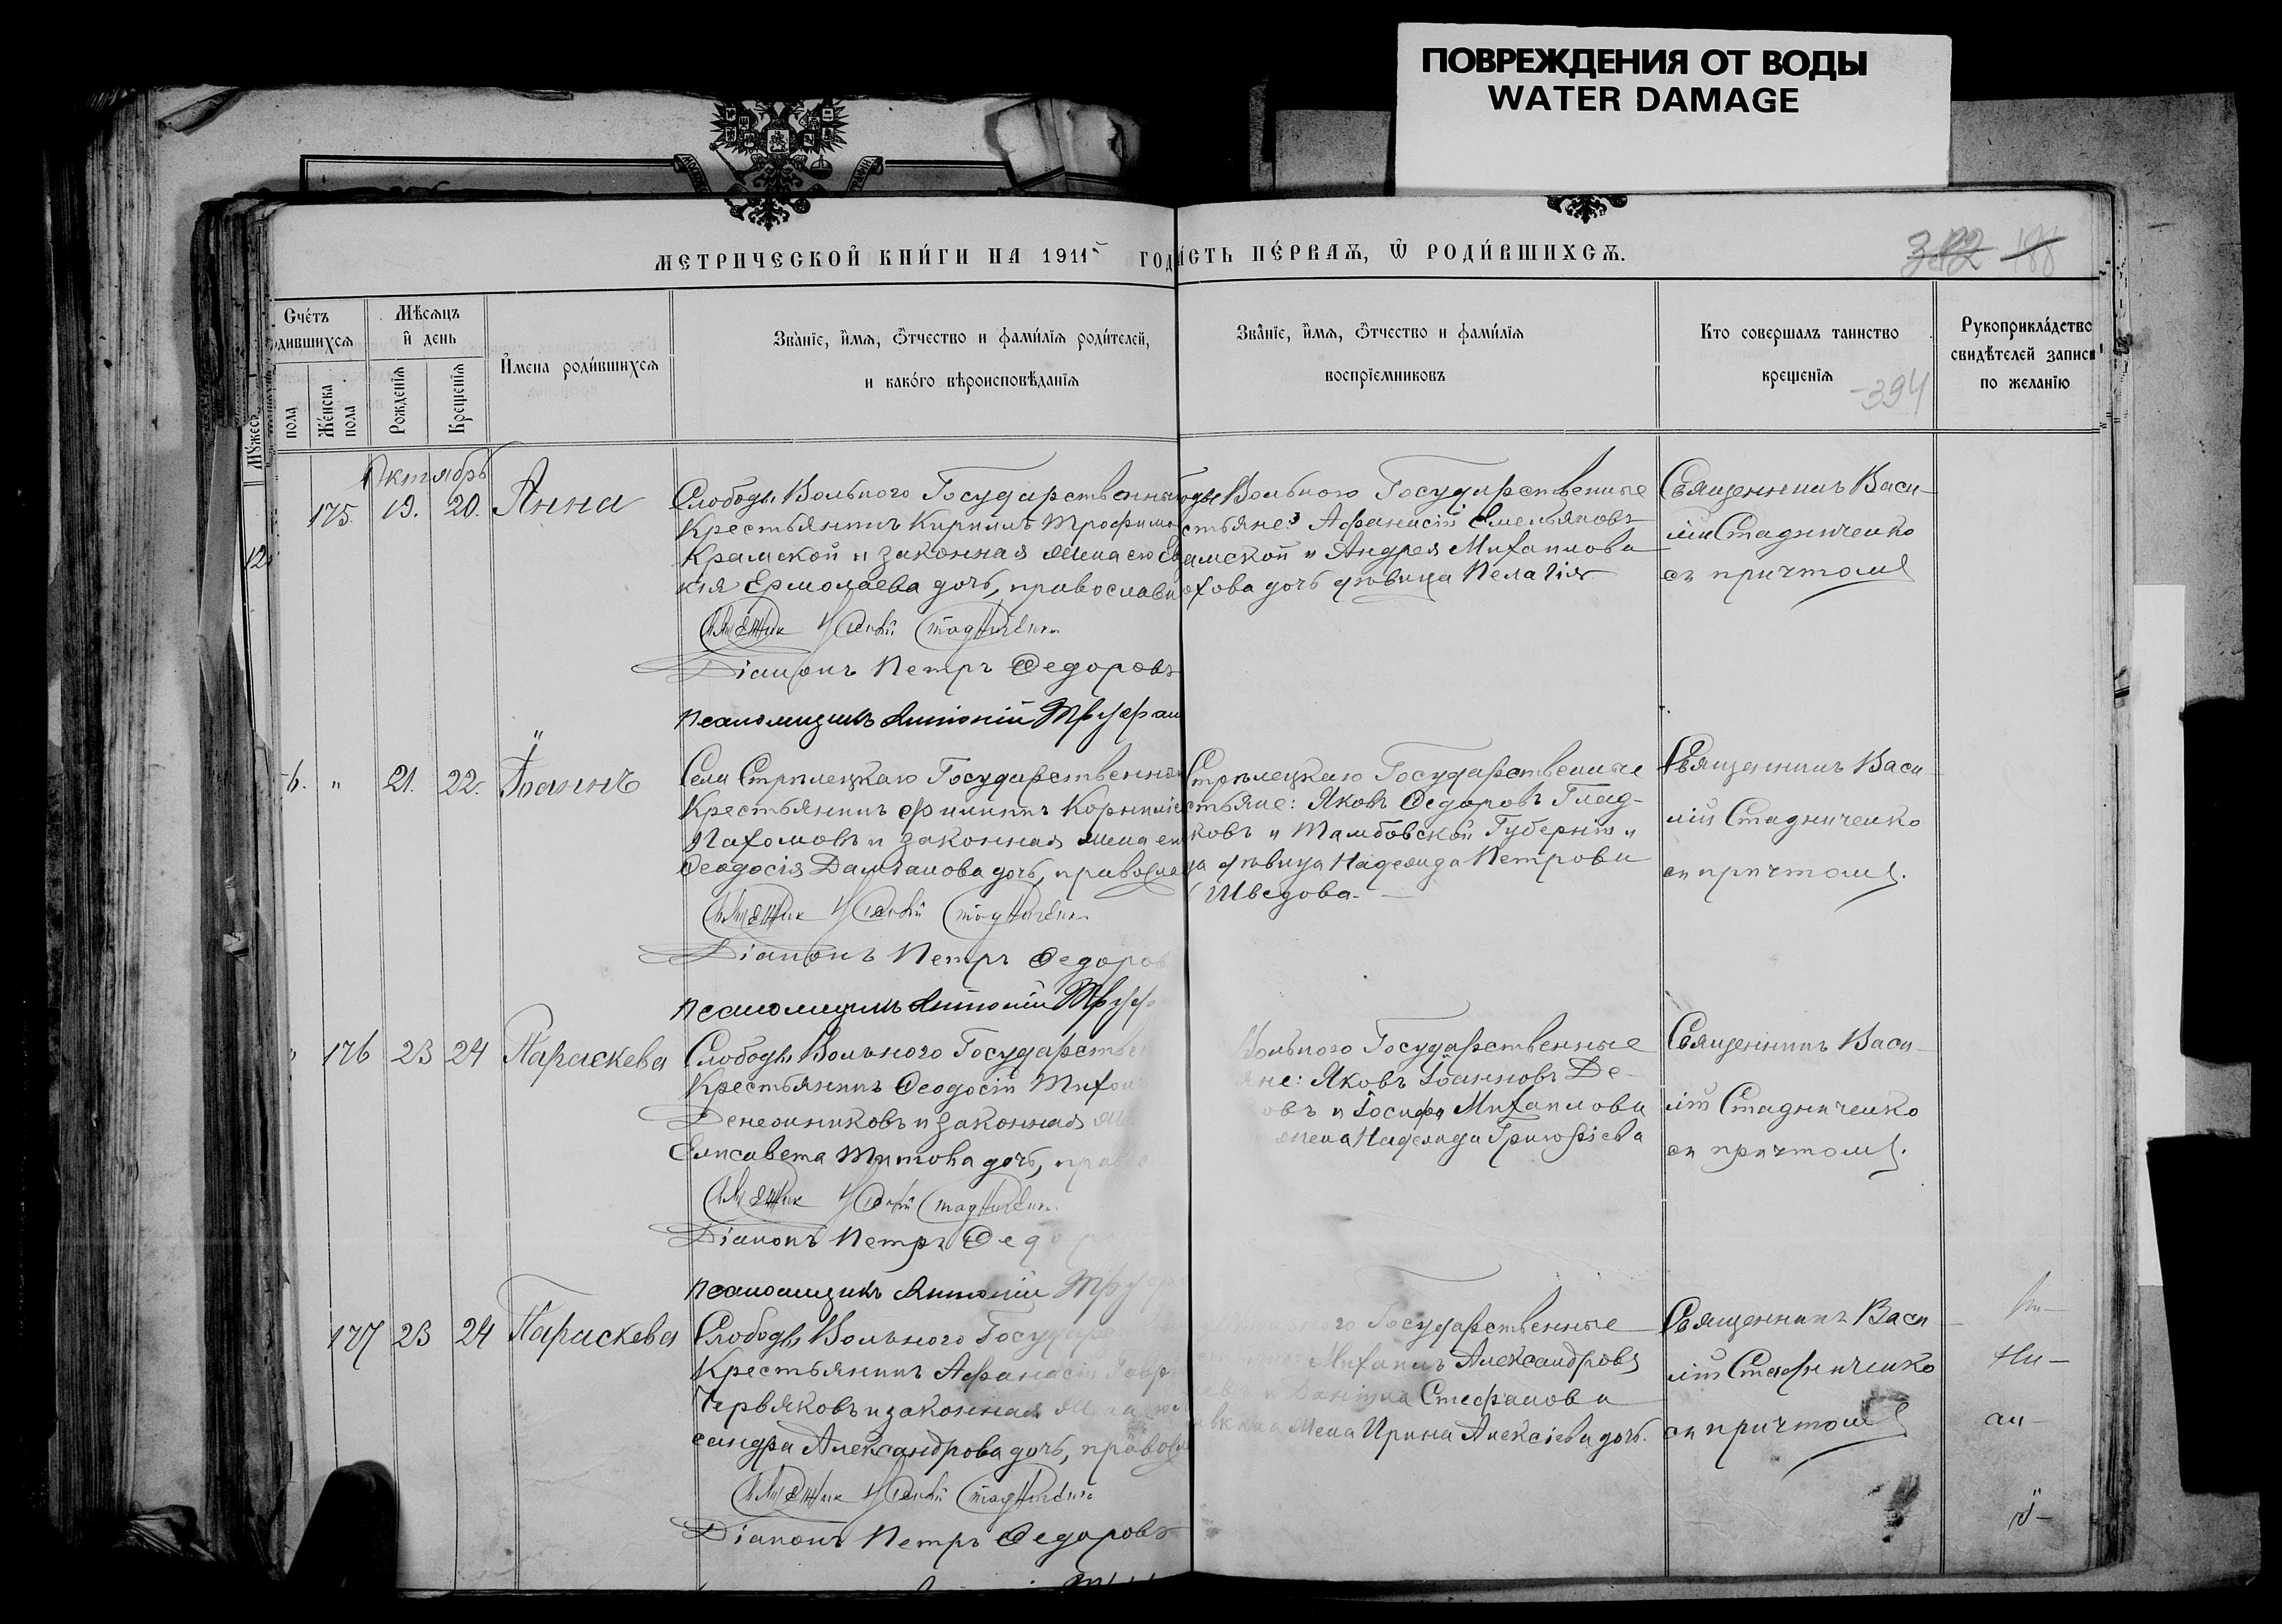 ПОВРЕЖДЕНИЯ ОТ ВОДЫ
WATER DAMAGE
МЕТРИЧЕСКОЙ КНИ́ГИ НА 1911й ГОД
СТЬ ПЕ́РВАѪ, Ѿ РОДИ́ВШИХСѦ.
382 188
Счётъ
дившихсѧ
Мѣсѧцъ
и день
Имена роди́вшихсѧ
Зва́нїе, и́мѧ, ѻ́тчество и фами́лїѧ роди́телей,
и како́го вѣроисповѣ́данїѧ
Мужеск
пола
Же́нска
пола
Рожденїѧ
Крещенїѧ
Зва́нїе, и́мѧ, ѻ́тчество и фами́лїѧ
воспрїемниковъ
Кто совершалъ таинство
крещенїѧ
-394
Рукоприкла́дство
свидѣ́телей записи
по желанїю
Октябрь
175. 19. 20. Анна
Слободы Вольного Государственный
Крестьянинъ Кириллъ Трофимо
Крамской и законная жена его Ев
кія Ермолаева дочь, православн
Священник Василій Стадниченко
Діаконъ Петръ Ѳедоровъ
Псаломщикъ Антоній Труфан
оды Вольного Государственные
стьяне: Аѳанасій Емельяновъ
амской и Андрея Михаилова
охова дочь дѣвица Пелагія
Священникъ Васи-
лій Стадниченко
съ причтомъ
6. " 21. 22. Іоаннъ
Села Стрѣлецкаго Государственный
Крестьянинъ Филиппъ Корниліе
Пахомовъ и законная жена ег
Ѳеодосія Даміанова дочь, правосла
Священник Василій Стадниченко
Діаконъ Петръ Ѳедоров
Псаломщикъ Антоній Труф
Стрѣлецкаго Государственные
стьяне: Яковъ Ѳедоровъ Глад-
ковъ и Тамбовской Губерніи и
да дѣвица Надежда Петрова
Шведова.
Священникъ Васи-
лій Стадниченко
съ причтомъ.
" 176 23 24 Параскева
Слободы Вольного Государствен
Крестьянинъ Ѳеодосій Тихон
Денежниковъ и законная же
Елисавета Титова дочь, правос
Священник Василій Стадниченко
Діаконъ Петръ Ѳедоро
Псаломщикъ Антоній Труф
Вольного Государственные
яне: Яковъ Іоанновъ Де-
овъ и Іосифа Михаилова
жена Надежда Григоріева
Священникъ Васи-
лій Стадниченко
съ причтомъ.
177 23 24 Параскева
Слободы Вольного Государ
Крестьянинъ Аѳанасій Гавр
Червяковъ и законная жена
сандра Александрова дочь, правосл
Священник Василій Стадниченко
Діаконъ Петръ Ѳедоровъ
Государственные
Михаилъ Александровъ
и Даніила Стефанова
жена Ирина Алексіева дочь.
Священникъ Васи-
лій Стадниченко
съ причтомъ